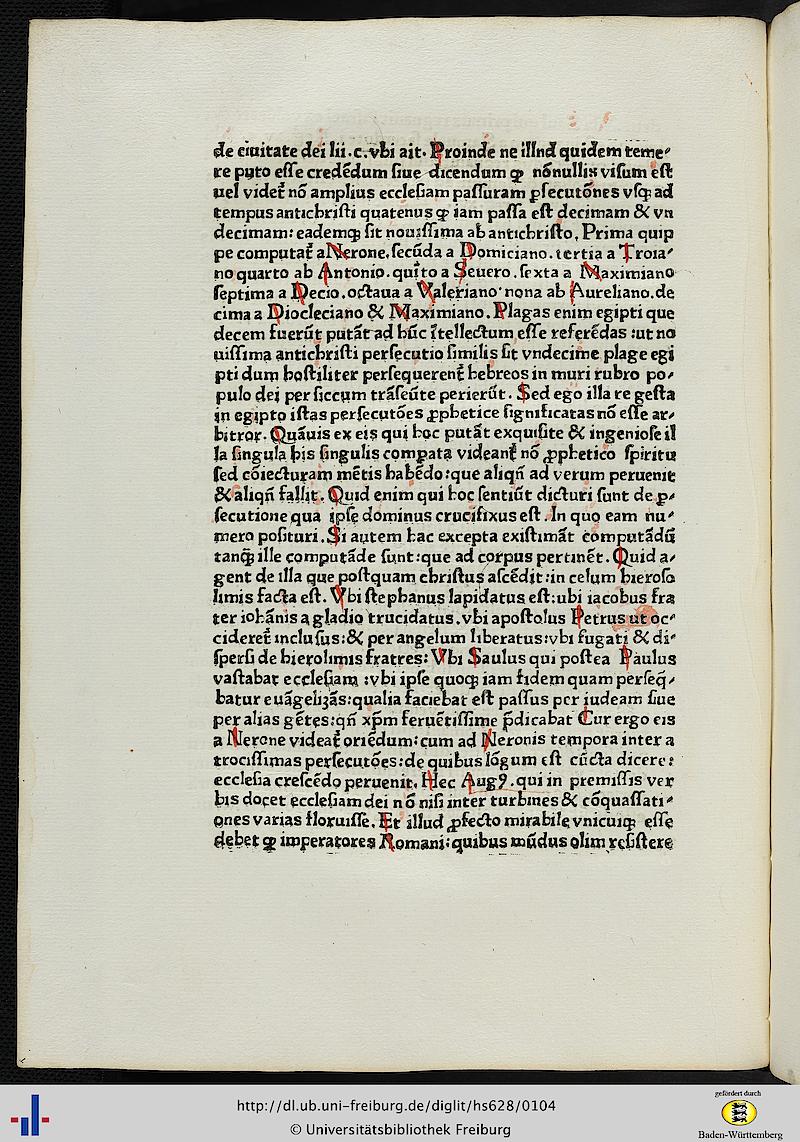 de ciuitate dei lii.c.vbi ait. Proinde ne illnd quidem teme⸗
re puto esse credēdum siue dicendum ꝙ nōnullis visum est
uel videt̃ nō amplius ecclesiam passuram ꝑsecutōnes vsqꝫ ad
tempus antichristi quatenus ꝙ iam passa est decimam & vn
decimam: eademqꝫ sit nouissima ab antichristo. Prima quip
pe computat̃ a Nerone. secūda a Domiciano. tertia a Troia⸗
no quarto ab Antonio. quīto a Seuero. sexta a Maximiano
septima a Decio. octaua a Valeriano. nona ab Aureliano. de
cima a Diocleciano & Maximiano. Plagas enim egipti que
decem fuerūt putāt ad hūc ītellectum esse referēdas :ut no
uissima antichristi persecutio similis sit vndecime plage egi
pti dum hostiliter persequerent̃ hebreos in muri rubro po⸗
pulo dei per siccum trāseūte perierūt. Sed ego illa re gesta
in egipto istas persecutōes ꝓphetice significatas nō esse ar⸗
bitror. Quāuis ex eis qui hoc putāt exquisite & ingeniose il
la singula his singulis compata videant̃ nō ꝓphetico spiritu
sed cōiecturam mētis habēdo: que aliqñ ad verum peruenit
& aliqñ fallit. Quid enim qui hoc sentiūt dicturi sunt de ꝑ⸗
secutione qua ipse dominus crucifixus est. In quo eam nu⸗
mero posituri. Si autem hac excepta existimāt computādū
tanqꝫ ille computāde sunt: que ad corpus pertinēt. Quid a⸗
gent de illa que postquam christus ascēdit: in celum hieroso
limis facta est. Vbi stephanus lapidatus est: ubi iacobus fra
ter iohānis a gladio trucidatus. vbi apostolus Petrus ut oc⸗
cideret̃ inclusus: & per angelum liberatus: vbi fugati & di⸗
spersi de hierolimis fratres: Vbi Saulus qui postea Paulus
vastabat ecclesiam :vbi ipse quoqꝫ iam fidem quam perseq̄⸗
batur euāgelizās: qualia faciebat est passus per iudeam siue
per alias gētes: qñ xp̄m feruētissime p̄dicabat Cur ergo eis
a Nerone videat̃ oriēdum: cum ad Neronis tempora inter a
trocissimas persecutōes: de quibus lōgum est cūcta dicere:
ecclesia crescēdo peruenit. Hec Augꝰ. qui in premissis ver
bis docet ecclesiam dei nō nisi inter turbines & cōquassati⸗
ones varias floruisse. Et illud ꝓfecto mirabile vnicuiqꝫ esse
debet ꝙ imperatores Romani: quibus mūdus olim resistere
http://dl.ub.uni-freiburg.de/diglit/hs628/0104
© Universitätsbibliothek Freiburg
gefördert durch
Baden-Württemberg